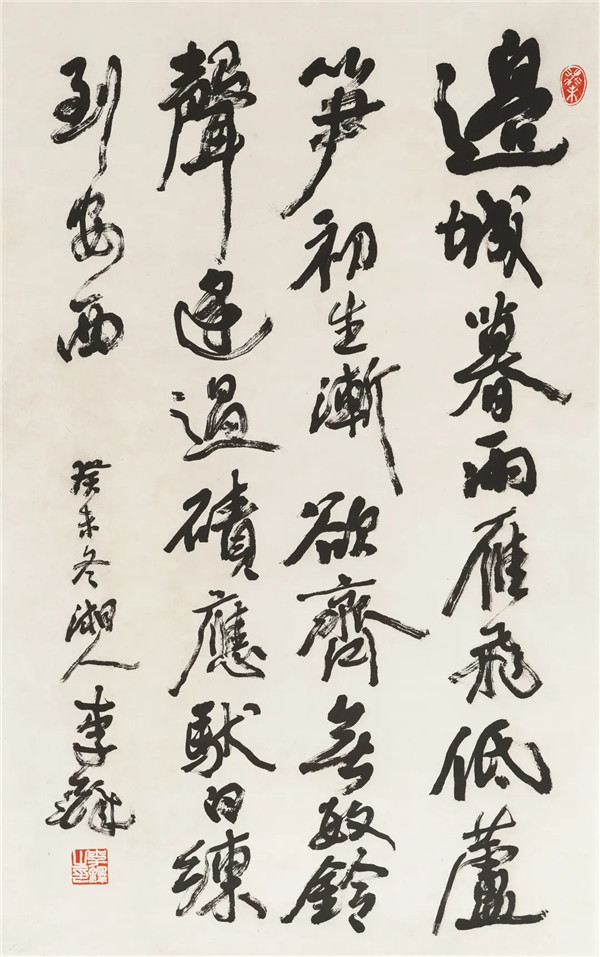 邊城暮雨雁飛低蘆
笋初生漸欲齊無數鈴
聲遙過磧應馱白練
到安西
癸未冬湘人李鐸
癸未
李鐸之印